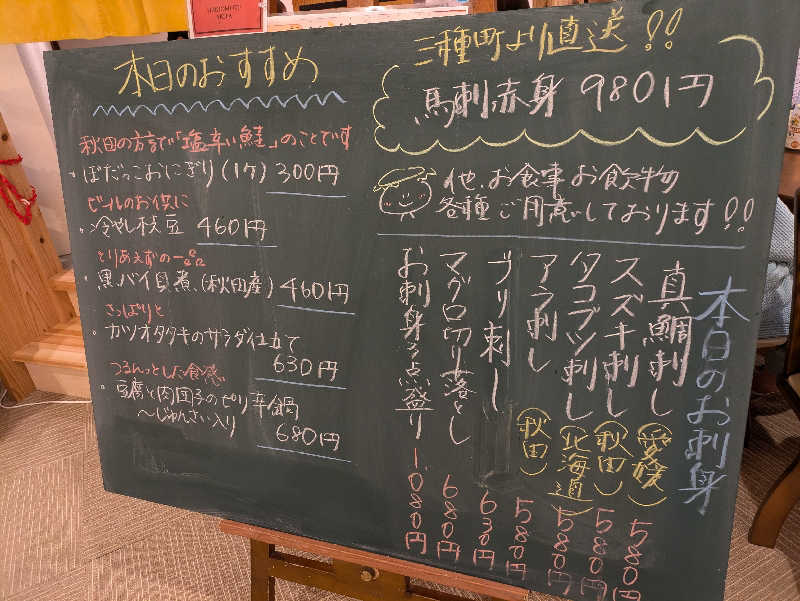 本日のおすすめ
秋田の方言で「塩辛い鮭」のことです
・ぼだっこおにぎり(1ケ) 300円
ビールのお供に
・冷やし枝豆 460円
とりあえずの一品
・黒バイ貝煮(秋田産) 460円
さっぱりと
・カツオタタキのサラダ仕立て
630円
つるんっとした食感
・豆腐と肉団子のピリ辛鍋
〜じゅんさい入り 680円
三種町より直送!!
馬刺赤身 980円
他、お食事お飲物
各種ご用意しております!!
本日のお刺身
真鯛刺し(愛媛) 580円
スズキ刺し(秋田) 580円
タコブツ刺し(北海道) 580円
アラ刺し(秋田) 580円
ブリ刺し 630円
マグロ切り落とし 680円
お刺身3点盛り 1,080円